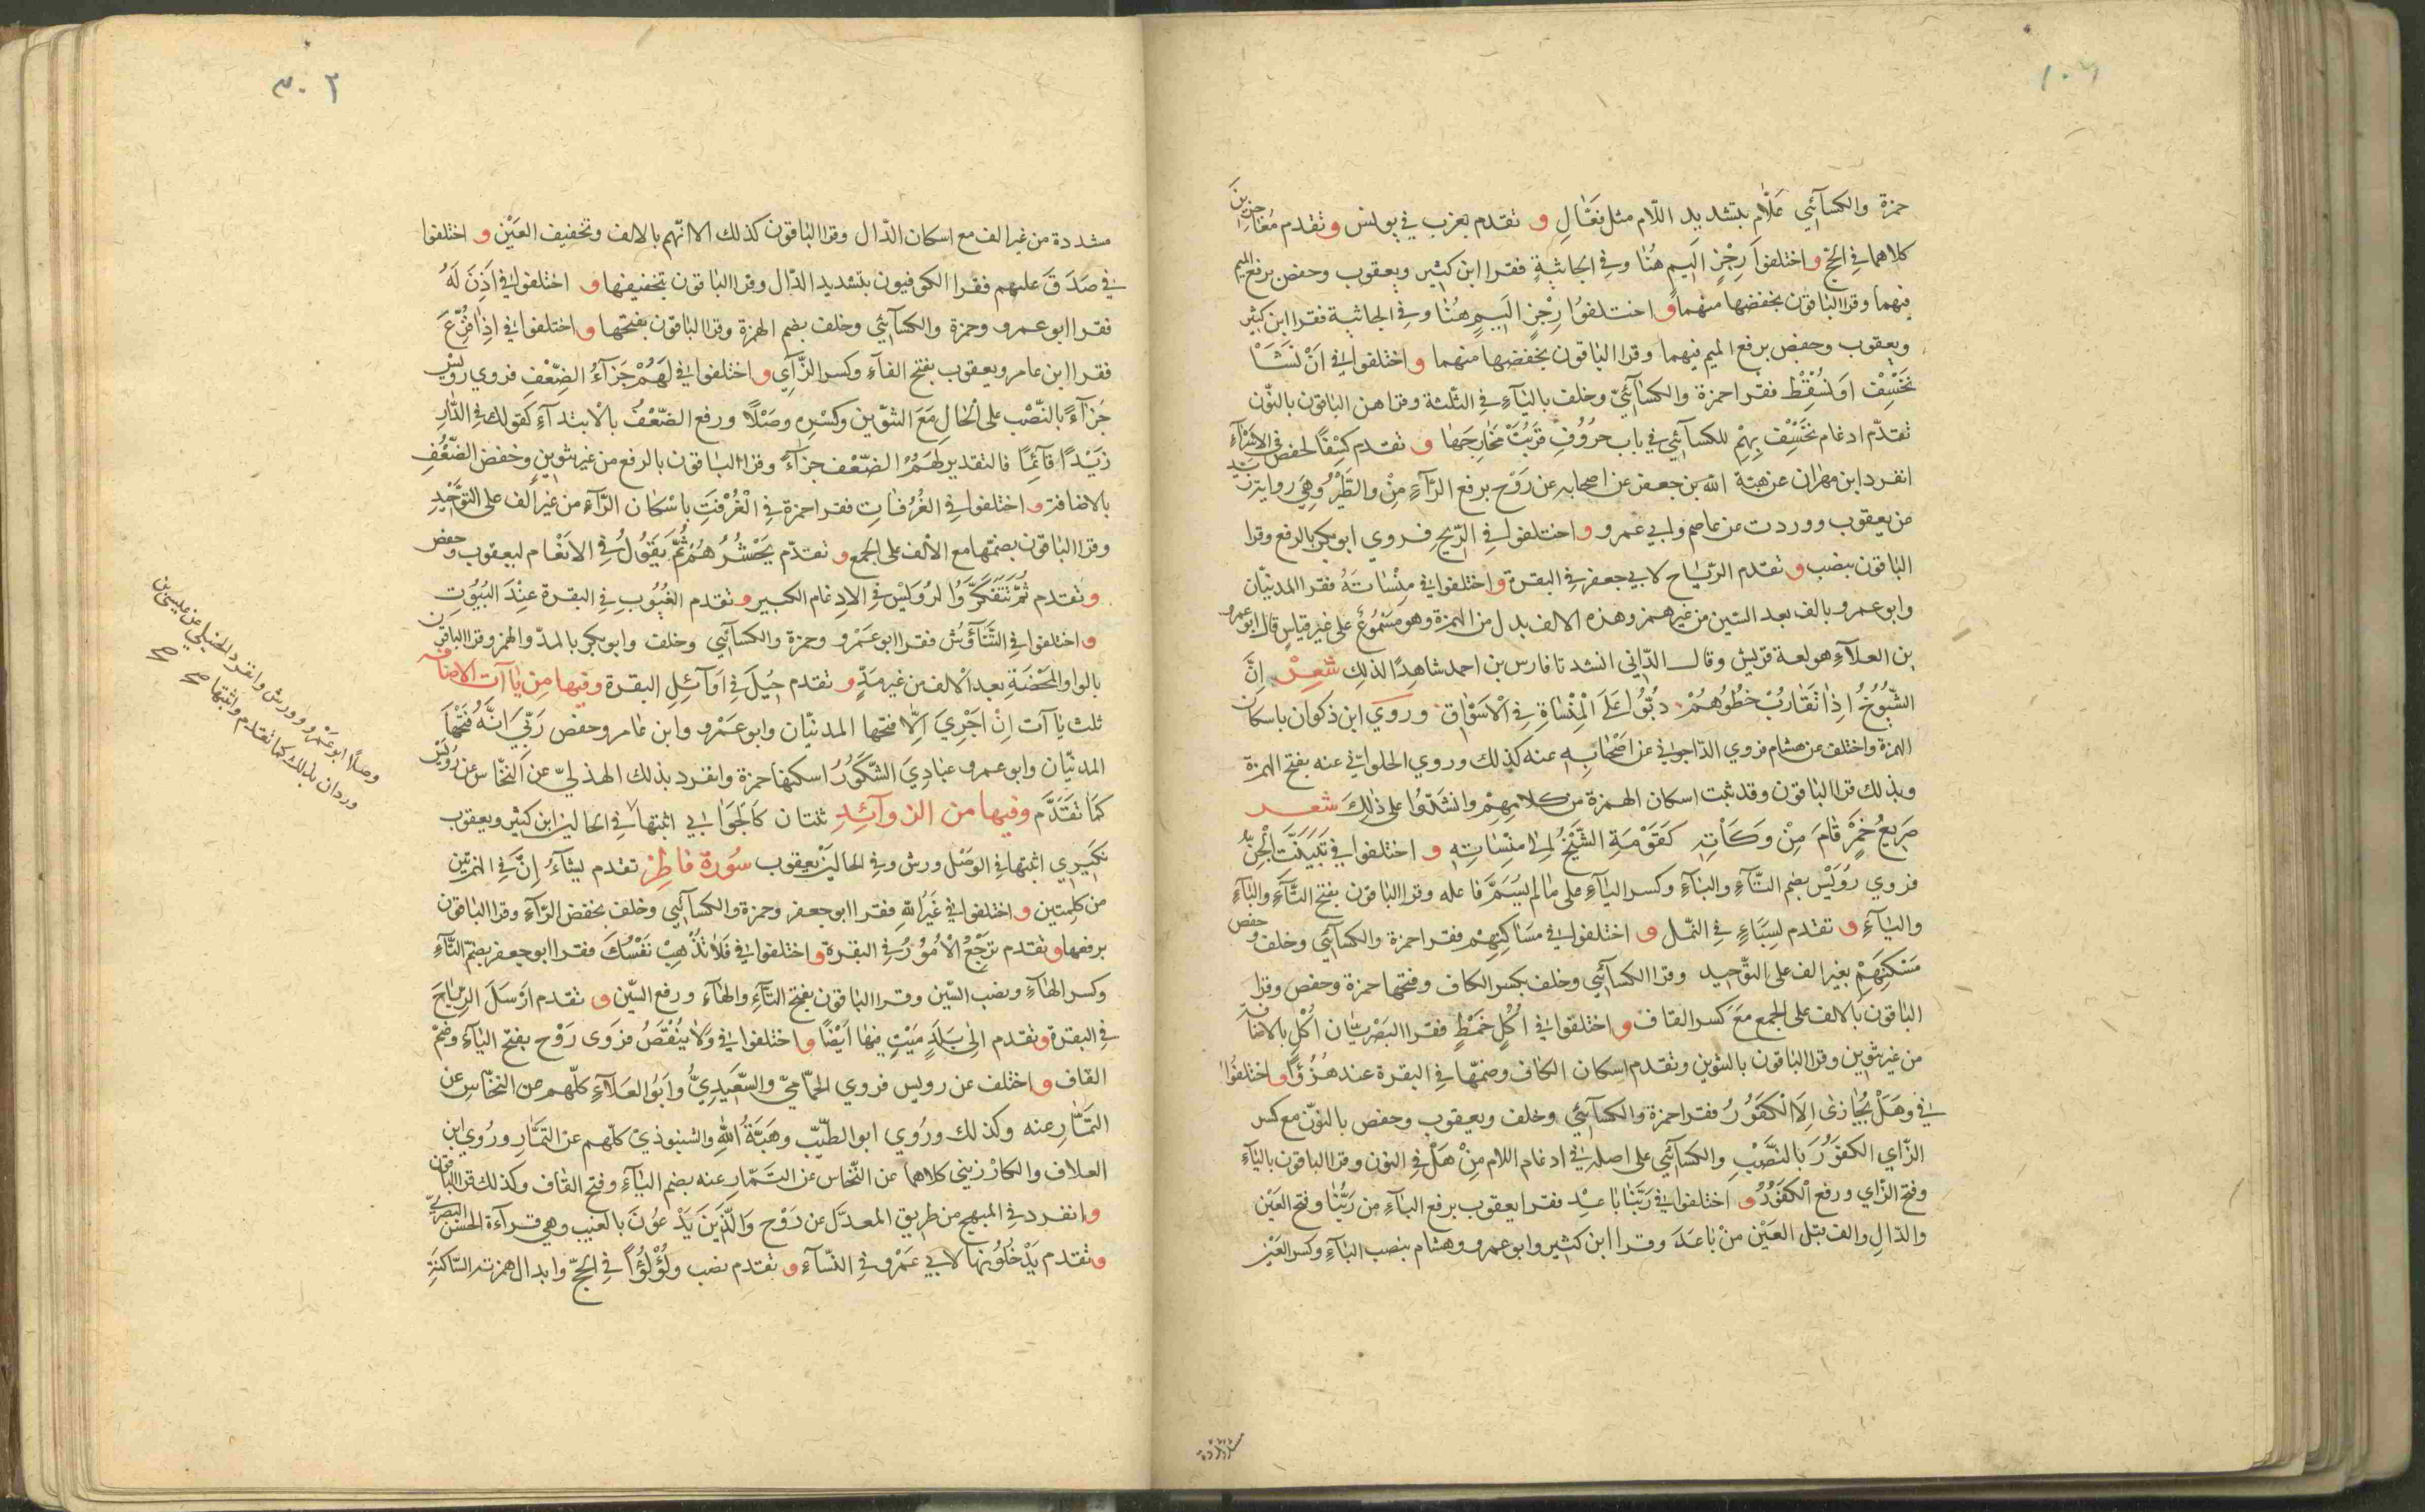 حمزة والكسآئي علّام بتشديد اللّام مثل فعّال و تقدم يعزب في يونس وتقدم معاجزين
كلاهما في الحج واختلفوا رجز اليم هنا وفي الجاثية فقرا ابن كثير ويعقوب وحفص برفع الميم
فيهما وقرا الباقون بخفضها منهما و اختلفوا رجز اليم هنا وفي الجاثية فقرا ابن كثير
ويعقوب وحفص برفع الميم فيهما وقرا الباقون بخفضها منهما و اختلفوا في ان نشأ
نخسف او نسقط فقرا حمزة والكسآئيّ وخلف باليآء في الثلثة وقراهن الباقون بالنّون
تقدّم ادغام نخسف بهم للكسآئي في باب حروف قربت مخارجها و تقدم كسفا لحفص في الاسرآء
انفرد ابن مهران عن هبة الله بن جعفر عن اصحابه عن روح برفع الرّآء من والطّير وهي رواية زيد
عن يعقوب ووردت عن عاصم وابي عمرو و اختلفوا في الرّيح فروي ابو بكر بالرفع وقرا
الباقون بنصب و تقدم الرّياح لابي جعفر في البقرة واختلفوا في منسأته فقرا المدنيّان
وابو عمرو بالف بعد السّين من غير همز وهذه الالف بدل من الهمزة وهو مسموع على غير قياس قال ابو عمرو
بن العلآء هو لغة قريش وقال الدّاني انشدنا فارس بن احمد شاهدا لذلك شعر انّ
الشّيوخ اذا تقارب خطوهم دبّوا على المنسأة في الاسواق وروي ابن ذكوان باسكان
الهمزة واختلف عن هشام فروي الدّاجوني عن اصحابه عنه كذلك وروي الحلواني عنه بفتح الهمزة
وبذلك قرا الباقون وقد ثبت اسكان الهمزة من كلامهم وانشدّوا على ذلك شعر
صريع خمر قام من وكأته كقومة الشّيخ الى منسأته و اختلفوا في تبيّنت الجنّ
فروي رويس بضم التّآء والبآء وكسر اليآء على ما لم يسمّ فاعله وقرا الباقون بفتح التّآء والبآء
واليآء و تقدم لسباء في النّمل و اختلفوا في مساكنهم فقرا حمزة والكسآئي وخلف وحفص
مسكنهم بغير الف على التّوحيد وقرا الكسآئي وخلف بكسر الكاف وفتحها حمزة وحفص وقرا
الباقون بالالف على الجمع مع كسر القاف و اختلفوا في اكل خمط فقرا البصريّان اكل بالاضافة
من غير تنوين وقرا الباقون بالتنوين وتقدم اسكان الكاف وضمّها في البقرة عند هزؤا واختلفوا
في وهل نجازى الا الكفور فقرا حمزة والكسآئي وخلف ويعقوب وحفص بالنوّن مع كسر
الزّاي الكفور بالنّصب والكسآئي على اصله في ادغام اللام من هل في النون وقرا الباقون باليآء
وفتح الزّاي ورفع الكفور و اختلفوا في ربّنا باعد فقرا يعقوب برفع البآء من ربّنا وفتح العين
والدّال والف قبل العين من باعد وقرا ابن كثير وابو عمرو وهشام بنصب البآء وكسر العين
مشددة
٣٠٢
مشددة من غير الف مع اسكان الدّال وقرا الباقون كذلك الا انّهم بالالف وتخفيف العين و اختلفوا
في صدق عليهم فقرا الكوفيون بتشديد الدّال وقرا الباقون بتخفيفها و اختلفوا في اذن له
فقرا ابو عمرو وحمزة والكسآئي وخلف بضم الهمزة وقرا الباقون بفتحها و اختلفوا في اذا فزّع
فقرا ابن عامر ويعقوب بفتح الفآء وكسر الزّآي و اختلفوا في لهم جزآء الضّعف فروي رويس
جزآء بالنّصب على الحال مع التّنوين وكسره وصلا ورفع الضّعف بالابتدآء كقولك في الدّار
زيدا قآئما فالتقدير لهم الضّعف جزآء وقرا الباقون بالرفع من غير تنوين وخفض الضّعف
بالاضافة و اختلفوا في الغرفات فقرا حمزة في الغرفت باسكان الرّآء من غير الف على التّوحيد
وقرا الباقون بضمّها مع الالف على الجمع و تقدّم يحشرهم ثمّ يقول في الانعام ليعقوب وحفص
وتقدم ثمّ تتفكّروا لرويس في الادغام الكبير و تقدم الغيوب في البقرة عند البيوت
و اختلفوا في التّنآؤش فقرا ابو عمرو وحمزة والكسآئي وخلف وابو بكر بالمدّ والهمز وقرا الباقون
بالواو المحضة بعد الالف من غير مدّ و تقدم حيل في اوآئل البقرة وفيها من ياآت الاضافه
ثلث ياآت ان اجري الّا فتحها المدنيّان وابو عمرو وابن عامر وحفص ربّي انّه فتحها
المدنيّان وابو عمرو عبادي الشّكور اسكنها حمزة وانفرد بذلك الهذليّ عن النّخّاس عن رويس
كما تقدّم وفيها من الزوآئد ثنتان كالجوابي اثبتها في الحالين ابن كثير ويعقوب
نكيري اثبتها في الوصل ورش وفي الحالين يعقوب سورة فاطر تقدم يشآء انّ في الهمزتين
من كلمتين و اختلفوا في غير الله فقرا ابو جعفر وحمزة والكسآئي وخلف بخفض الرّآء وقرا الباقون
برفعها و تقدم ترجع الامور في البقرة و اختلفوا في فلا تذهب نفسك فقرا ابو جعفر بضم التّآء
وكسر الهآء ونصب السّين وقرا الباقون بفتح التّآء والهآء ورفع السّين و تقدم ارسل الرّياح
في البقرة وتقدم الى بلد ميت فيها ايضا و اختلفوا في ولا ينقص فروى روح بفتح اليآء وضم
القاف و اختلف عن رويس فروي الحمّاميّ والسّعيديّ وابو العلآء كلّهم عن النخّاس عن
التمّار عنه وكذلك وروي ابو الطيّب وهبة الله والشنبوذيّ كلّهم عن التمّار وروي ابن
العلاف والكارزيني كلاهما عن النّخاس عن التّمّار عنه بضم اليآء وفتح القاف وكذلك قرا الباقون
وانفرد في المبهج من طريق المعدّل عن روح والّذين يدعون بالغيب وهي قرآءة الحسن البصريّ
وتقدم يدخلونها لابي عمرو في النّسآء و تقدم نصب ولؤلؤا في الحجّ وابدال همزته السّاكنة
وصلا ابو عمرو وورش وانفرد الحنبلي عن عيسى بن
وردان بذلك كما تقدم واثبتها صح صح